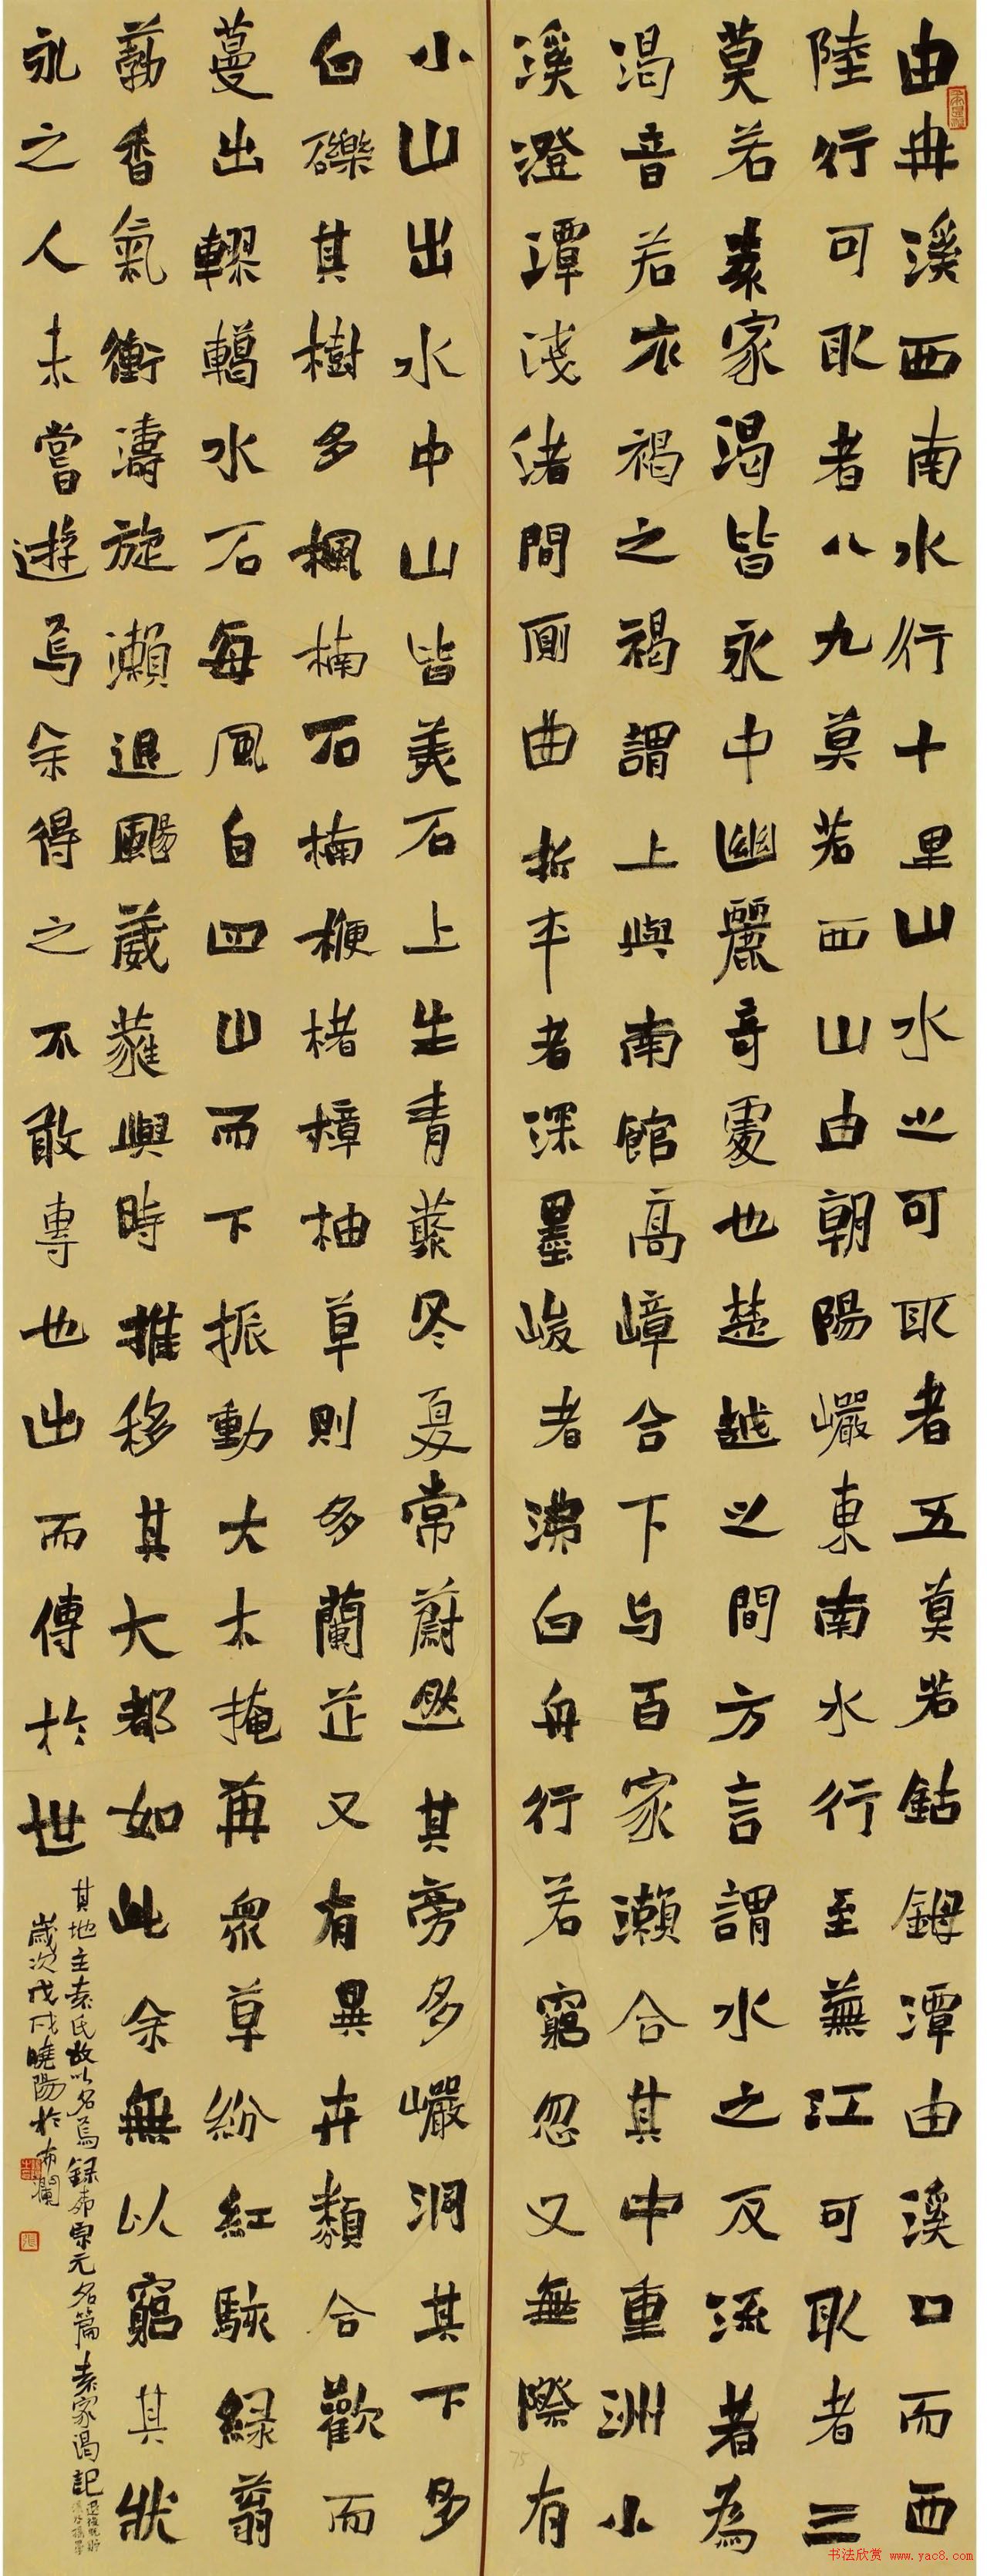 由冉溪西南水行十里山水之可取者五莫若鈷鉧潭由溪口而西
陸行可取者八九莫若西山由朝陽巖東南水行至蕪江可取者三
莫若袁家渴皆永中幽麗奇處也楚越之間方言謂水之反流者為
渴音若衣褐之褐謂上與南館高嶂合下与百家瀨合其中重洲小
溪澄潭淺渚間廁曲折平者深墨峻者沸白舟行若窮忽又無際有
小山出水中山皆美石上生青叢冬夏常蔚然其旁多巖洞其下多
白礫其樹多楓楠石楠楩楮樟柚草則多蘭芷又有異卉類合歡而
蔓出轇轕水石每風自四山而下振動大木掩苒衆草紛紅駭緑蓊
葧香氣衝濤旋瀨退颺葳蕤與時推移其大都如此余無以窮其狀
永之人未嘗遊焉余得之不敢專也出而傳於世
其地主袁氏故以名焉録柳宗元名篇袁家渴記
歲次戊戌曉陽於布瀾
书法欣赏 www.yac8.com